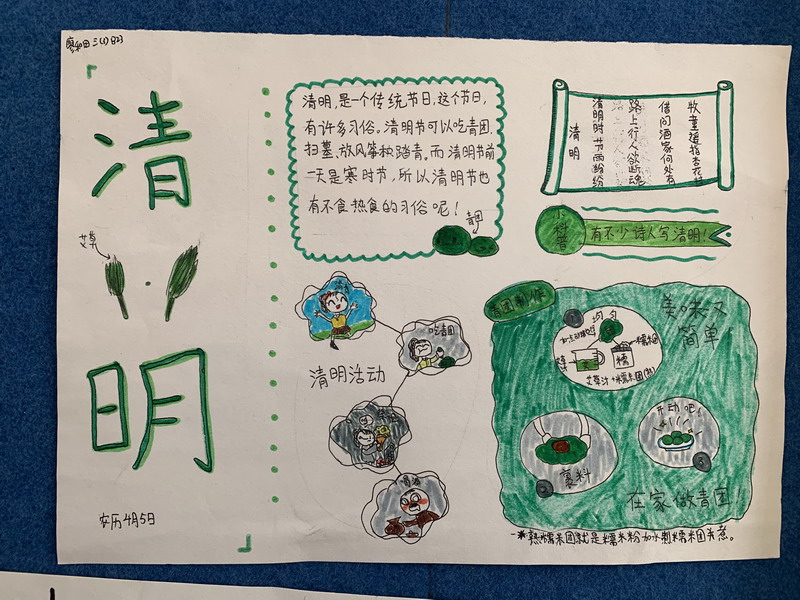 廖和田 三(1) 823
清
艾草
明
农历4月5日
清明,是一个传统节日,这个节日,
有许多习俗。清明节可以吃青团,
扫墓,放风筝和踏青。而清明节前
一天是寒时节,所以清明节也
有不食热食的习俗呢!
青团
清明
清明时节雨纷纷
路上行人欲断魂
借问酒家何处有
牧童遥指杏花村
小科普
有不少诗人写清明!
清明活动
吃青团
喝酒
青团制作
美味又
简单
1
均匀
糯米团
糯
艾草汁+糯米团(熟)
2
裹料
开动吧!
3
在家做青团!
熟糯米团就是糯米粉加水制糯米团蒸煮。